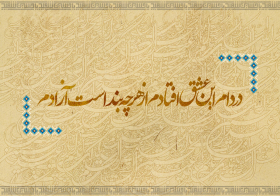 در دام این عشق افتادم از هر چه بند است آزادم